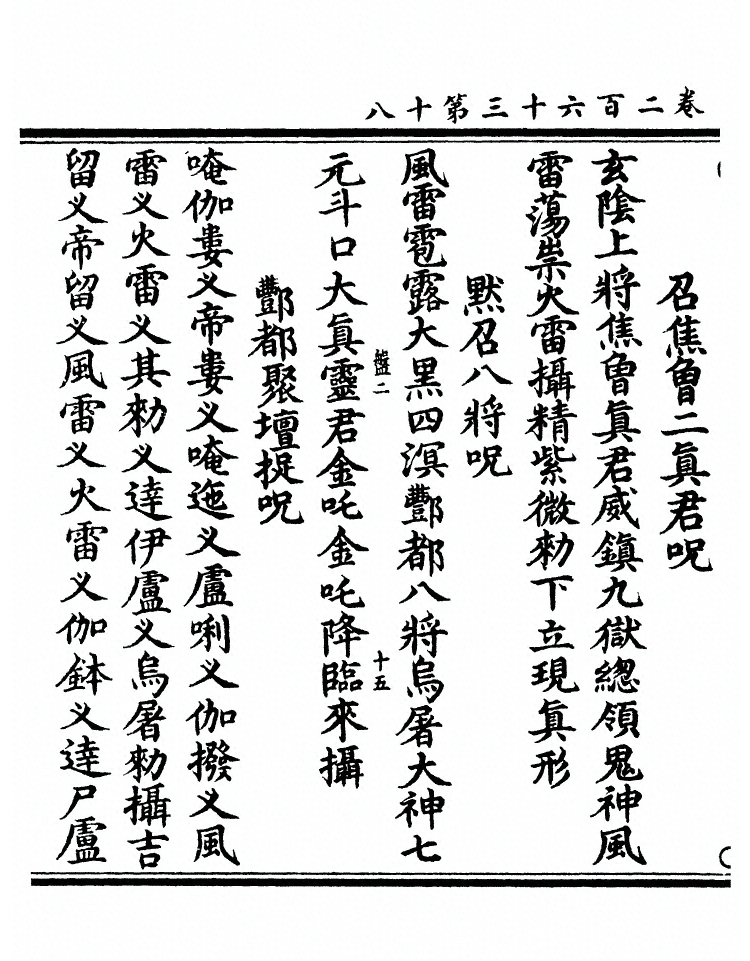 卷二百六十三第十八
召焦曾二眞君呪
玄陰上將焦曾眞君威鎮九獄總領鬼神風
雷蕩祟火雷攝精紫微勑下立現眞形
默召八將呪
風雷雹露大黒四溟酆都八將烏屠大神七
盤二 十五
元斗口大眞靈君金吒金吒降臨來攝
酆都聚壇捉呪
唵伽婁乂帝婁乂唵迤乂盧唎乂伽撥乂風
雷乂火雷乂其勑乂逹伊盧乂烏屠勑攝吉
留乂帝留乂風雷乂火雷乂伽鉢乂逹尸盧